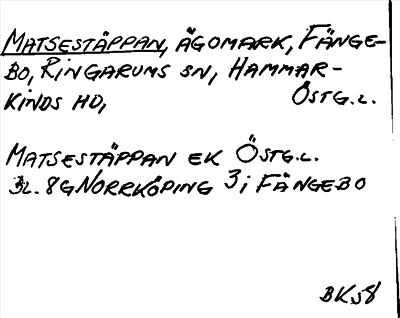 MATSESTÄPPAN, ÄGOMARK, FÄNGE-
BO, RINGARUMS SN, HAMMAR-
KINDS HD, ÖSTG.L.
MATSESTÄPPAN EK ÖSTG.L.
BL. 8G NORRKÖPING 3i FÄNGEBO
BK58